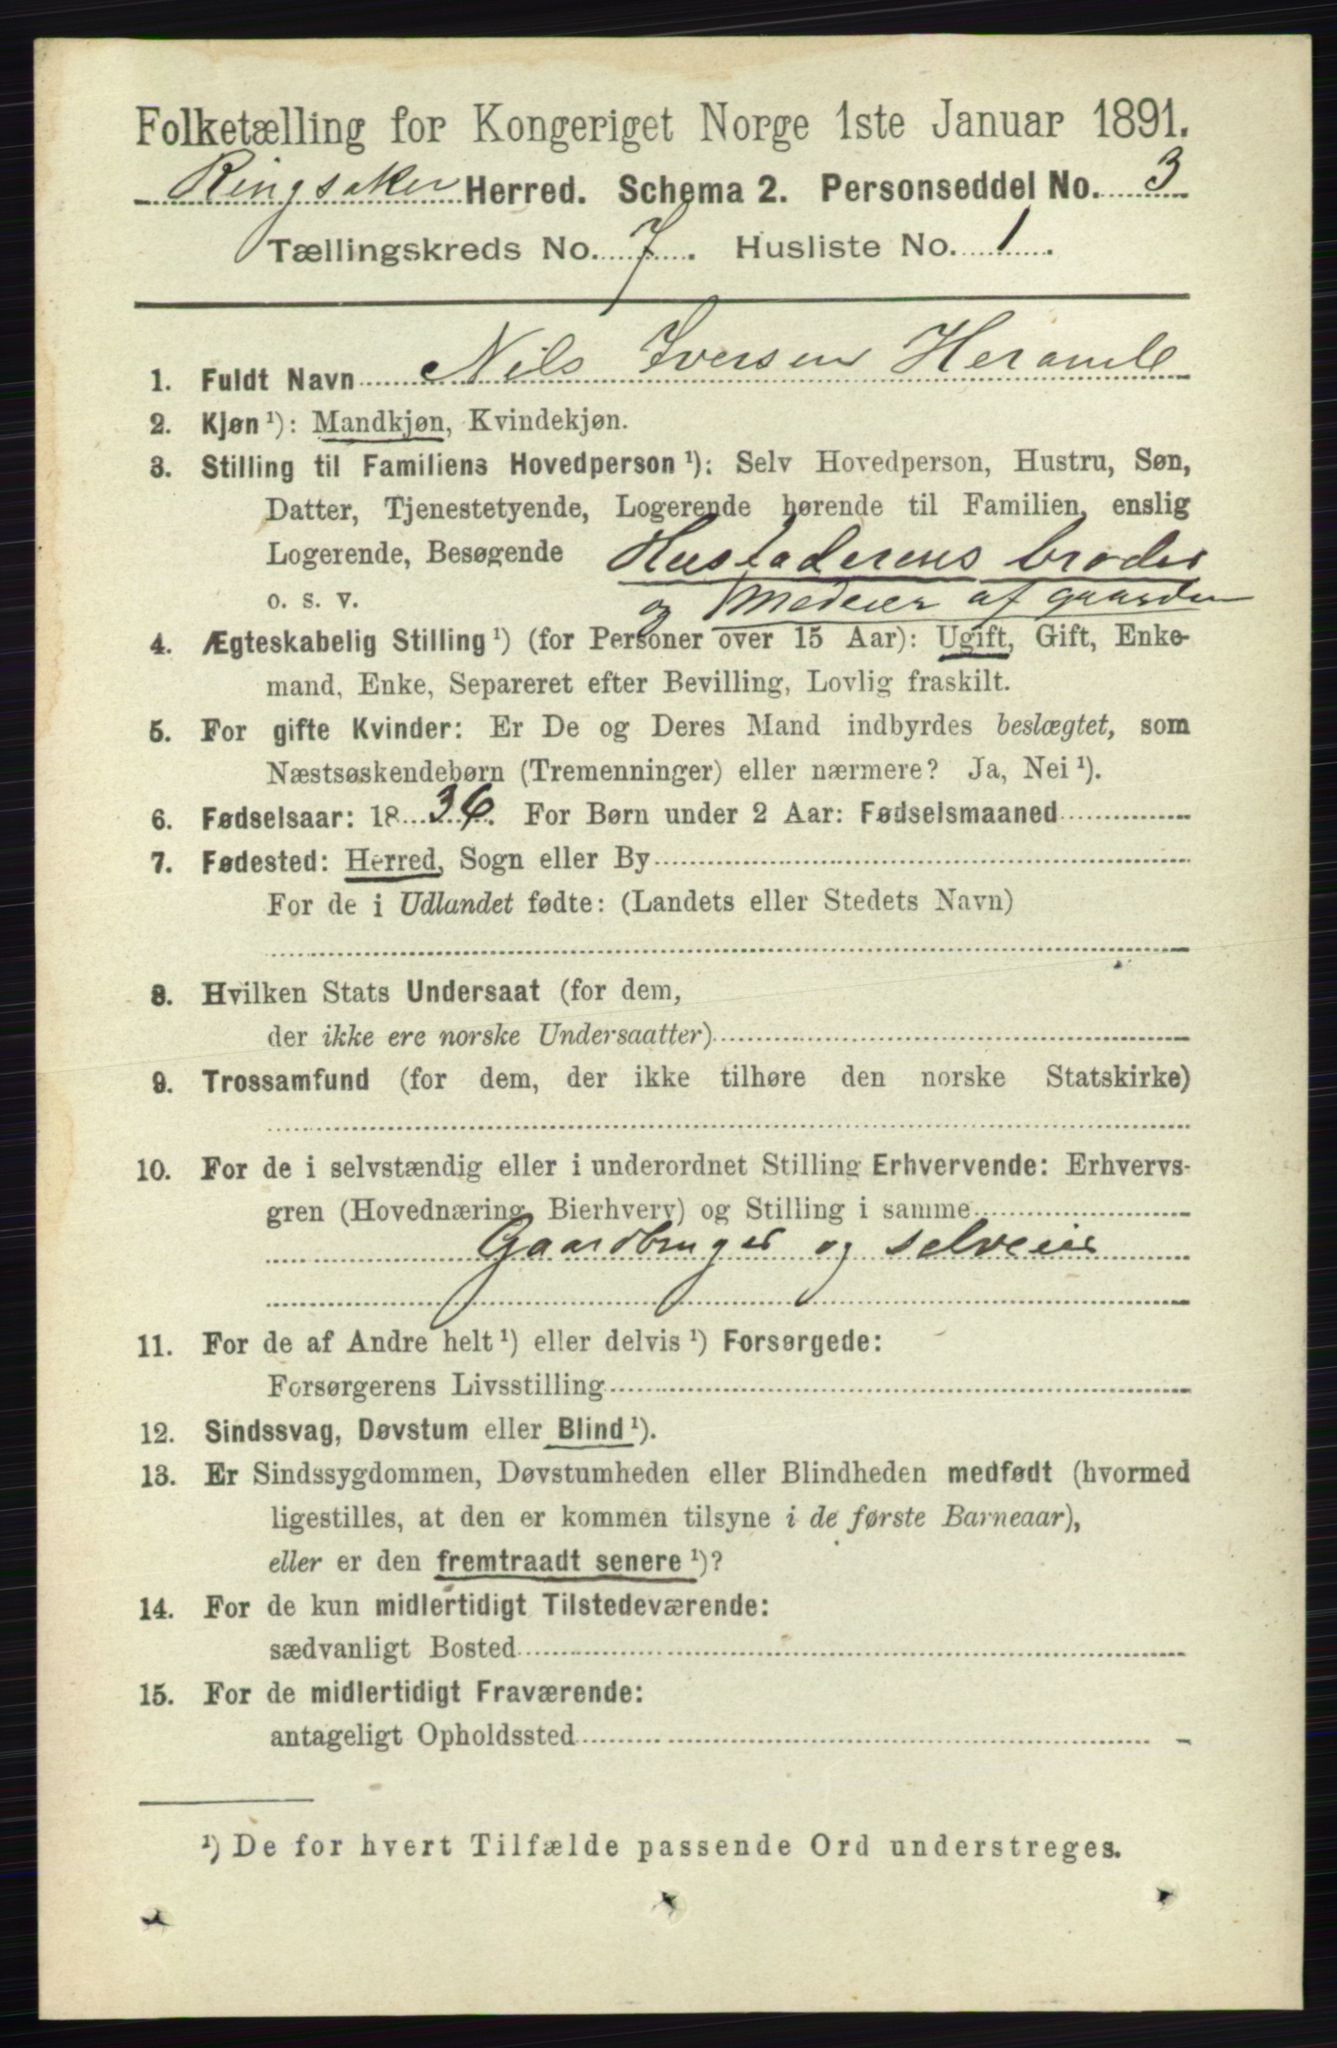 Folketælling for Kongeriget Norge 1ste Januar 1891.
Ringsaker Herred. Schema 2. Personseddel No. 3
Tællingskreds No. 7. Husliste No. 1.
1. Fuldt Navn Nils Iversen
2. Kjøn ¹): Mandkjøn, Kvindekjøn.
3. Stilling til Familiens Hovedperson ¹): Selv Hovedperson, Hustru, Søn,
Datter, Tjenestetyende, Logerende hørende til Familien, enslig
Logerende, Besøgende Husfaderens broder
o. s. v. og Medeier af gaarden
4. Ægteskabelig Stilling ¹) (for Personer over 15 Aar): Ugift, Gift, Enke-
mand, Enke, Separeret efter Bevilling, Lovlig fraskilt.
5. For gifte Kvinder: Er De og Deres Mand indbyrdes beslægtet, som
Næstsøskendebørn (Tremenninger) eller nærmere? Ja, Nei ¹).
6. Fødselsaar: 1836. For Børn under 2 Aar: Fødselsmaaned
7. Fødested: Herred, Sogn eller By
For de i Udlandet fødte: (Landets eller Stedets Navn)
8. Hvilken Stats Undersaat (for dem,
der ikke ere norske Undersaatter)
9. Trossamfund (for dem, der ikke tilhøre den norske Statskirke)
10. For de i selvstændig eller i underordnet Stilling Erhvervende: Erhvervs-
gren (Hovednæring, Bierhverv) og Stilling i samme
Gaardbruger og selveier
11. For de af Andre helt ¹) eller delvis ¹) Forsørgede:
Forsørgerens Livsstilling
12. Sindssvag, Døvstum eller Blind ¹).
13. Er Sindssygdommen, Døvstumheden eller Blindheden medfødt (hvormed
ligestilles, at den er kommen tilsyne i de første Barneaar),
eller er den fremtraadt senere ¹)?
14. For de kun midlertidigt Tilstedeværende:
sædvanligt Bosted
15. For de midlertidigt Fraværende:
antageligt Opholdssted
¹) De for hvert Tilfælde passende Ord understreges.